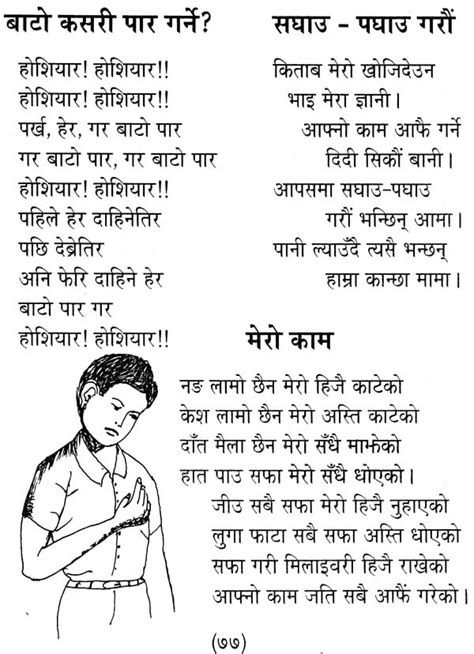 बाटो कसरी पार गर्ने?
होशियार! होशियार!!
होशियार! होशियार!!
पर्ख, हेर, गर बाटो पार
गर बाटो पार, गर बाटो पार
होशियार! होशियार!!
पहिले हेर दाहिनेतिर
पछि देब्रेतिर
अनि फेरि दाहिने हेर
बाटो पार गर
होशियार! होशियार!!
सघाउ - पघाउ गरौं
किताब मेरो खोजिदेउन
भाइ मेरा ज्ञानी।
आफ्नो काम आफै गर्ने
दिदी सिकौं बानी।
आपसमा सघाउ-पघाउ
गरौं भन्छिन् आमा।
पानी ल्याउँदै त्यसै भन्छन्
हाम्रा कान्छा मामा।
मेरो काम
नङ लामो छैन मेरो हिजै काटेको
केश लामो छैन मेरो अस्ति काटेको
दाँत मैला छैन मेरो सँधै माझेको
हात पाउ सफा मेरो सँधै धोएको।
जीउ सबै सफा मेरो हिजै नुहाएको
लुगा फाटा सबै सफा अस्ति धोएको
सफा गरी मिलाइवरी हिजै राखेको
आफ्नो काम जति सबै आफैं गरेको।
(७७)